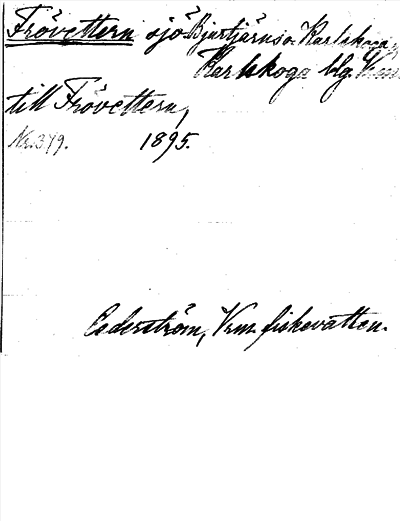 Frövettern sjö Bjurtjärns o. Karlskoga
Karlskoga blg. Vrm.
till Frövettern,
Nr. 379. 1895.
Cederström, Vrm. fiskevatten.